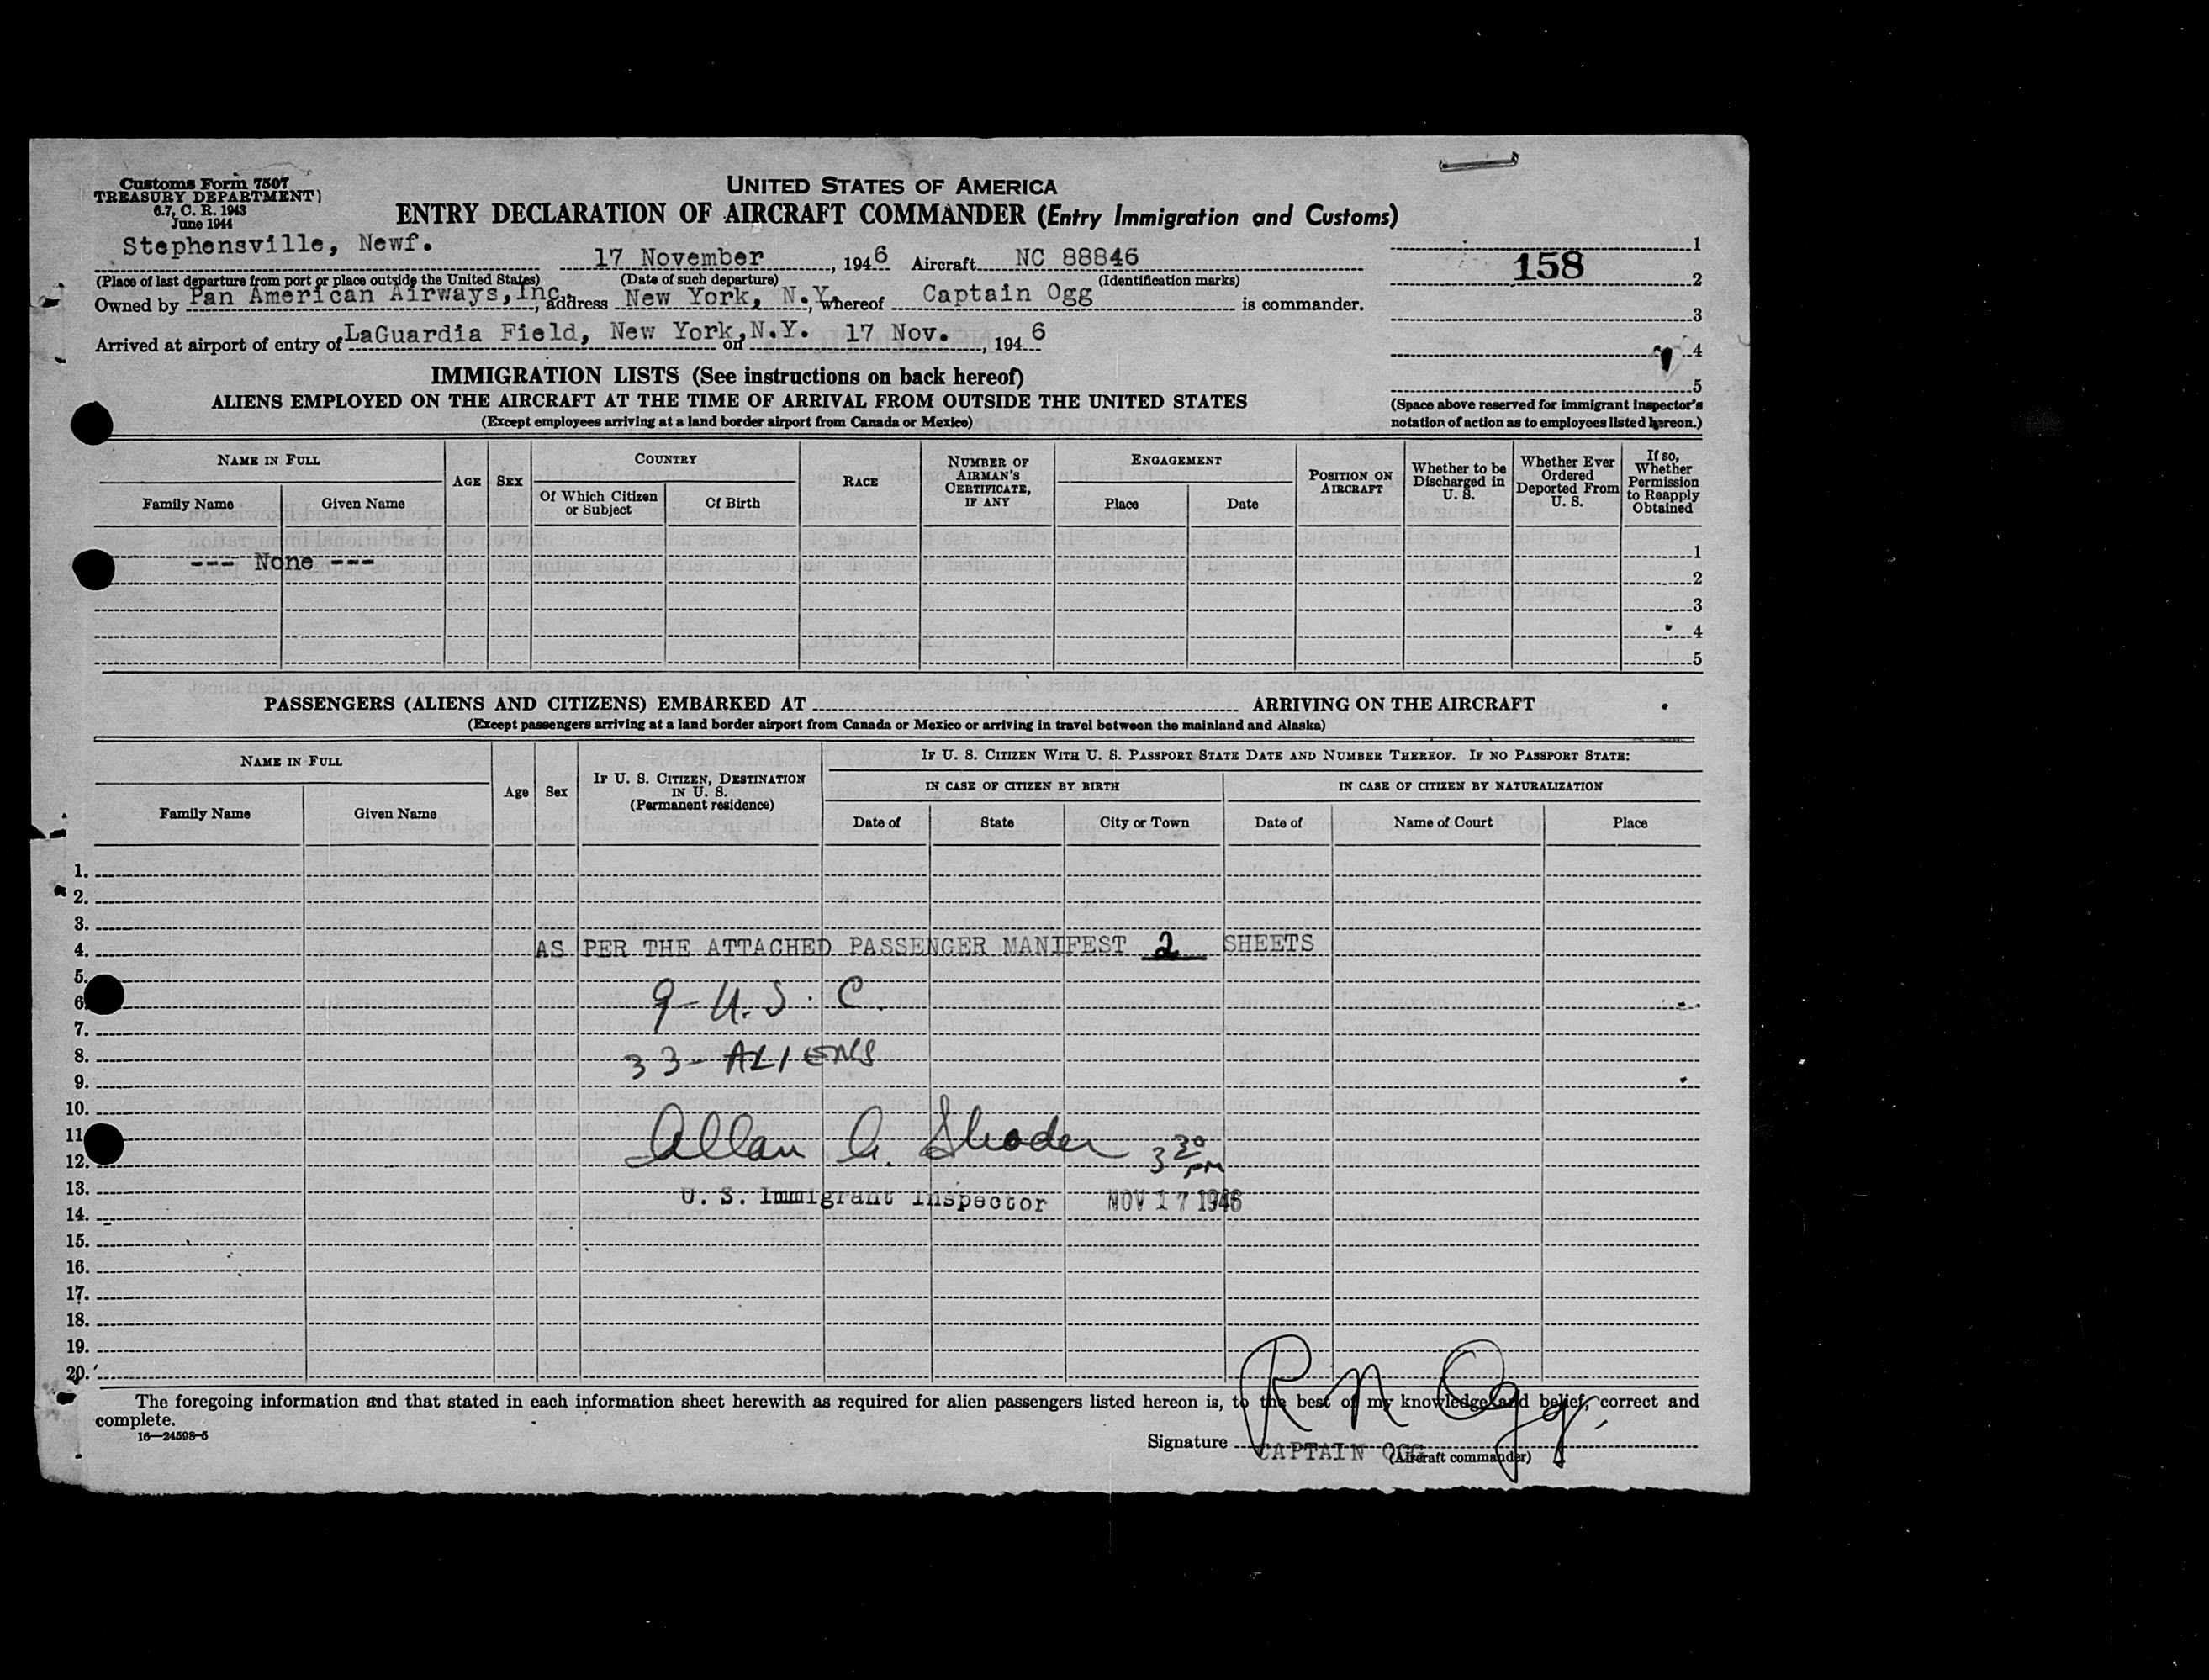 Customs Form 7507
TREASURY DEPARTMENT)
6.7, C. R. 1943
June 1944
UNITED STATES OF AMERICA
ENTRY DECLARATION OF AIRCRAFT COMMANDER (Entry Immigration and Customs)
Stephensville, Newf. 17 November, 1946 Aircraft NC 88846
(Place of last departure from port or place outside the United States) (Date of such departure) (Identification marks)
Owned by Pan American Airways, Inc., address New York, N.Y., whereof Captain Ogg is commander.
Arrived at airport of entry of LaGuardia Field, New York, N.Y. on 17 Nov., 1946
1
158
2
3
4
5
(Space above reserved for immigrant inspector's
notation of action as to employees listed hereon.)
IMMIGRATION LISTS (See instructions on back hereof)
ALIENS EMPLOYED ON THE AIRCRAFT AT THE TIME OF ARRIVAL FROM OUTSIDE THE UNITED STATES
(Except employees arriving at a land border airport from Canada or Mexico)
NAME IN FULL
Family Name Given Name
AGE SEX
COUNTRY
Of Which Citizen or Subject Of Birth
RACE
NUMBER OF AIRMAN'S CERTIFICATE, IF ANY
ENGAGEMENT
Place Date
POSITION ON AIRCRAFT
Whether to be Discharged in U. S.
Whether Ever Ordered Deported From U. S.
If so, Whether Permission to Reapply Obtained
1
--- None ---
2
3
4
5
PASSENGERS (ALIENS AND CITIZENS) EMBARKED AT ARRIVING ON THE AIRCRAFT
(Except passengers arriving at a land border airport from Canada or Mexico or arriving in travel between the mainland and Alaska)
NAME IN FULL
Family Name Given Name
Age Sex
IF U. S. CITIZEN, DESTINATION IN U. S.
(Permanent residence)
IF U. S. CITIZEN WITH U. S. PASSPORT STATE DATE AND NUMBER THEREOF. IF NO PASSPORT STATE:
IN CASE OF CITIZEN BY BIRTH IN CASE OF CITIZEN BY NATURALIZATION
Date of State City or Town Date of Name of Court Place
1.
2.
3.
4. AS PER THE ATTACHED PASSENGER MANIFEST 2 SHEETS
5.
6. 9-U.S.C.
7.
8. 33-ALIENS
9.
10.
11. Allan G. Shoder 3 30 PM
12.
13. U. S. Immigrant Inspector NOV 17 1946
14.
15.
16.
17.
18.
19.
20.
The foregoing information and that stated in each information sheet herewith as required for alien passengers listed hereon is, to the best of my knowledge and belief, correct and
complete.
16—24598-5
R N Ogg
Signature CAPTAIN OGG
(Aircraft commander)